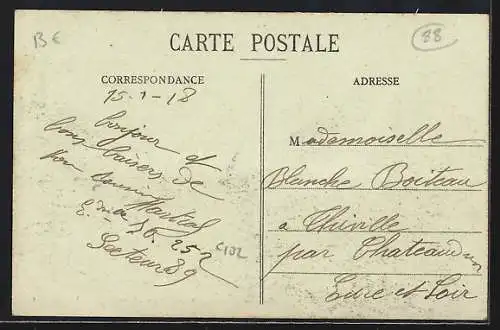 B€
88
CARTE POSTALE
CORRESPONDANCE
15-1-18
bonjour et
bons baisers de
ton cousin Martial
E. 36. 252
Secteur 89
C102
ADRESSE
Mademoiselle
Blanche Boiteau
à Thiville
par Chateaudun
Eure et Loir